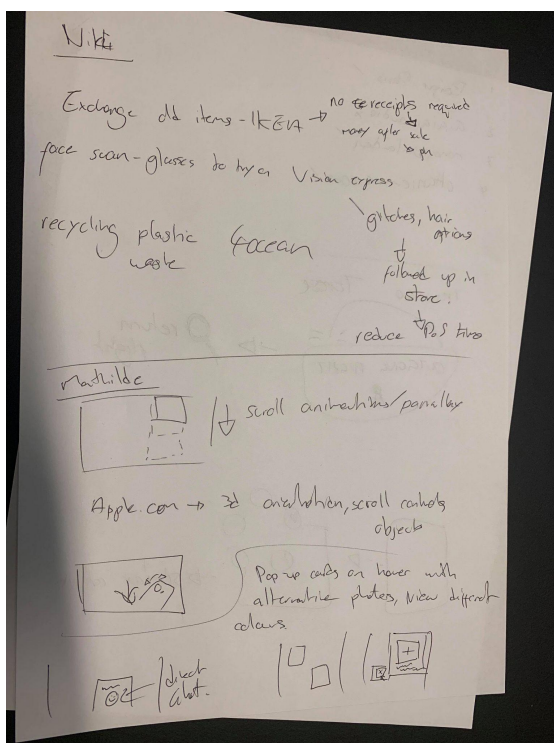 Niki
Exchange old items - IKEA → no receipts required
money after sale
face scan - glasses to try on Vision express
glitches, hair options
recycling plastic waste 4ocean
followed up in store.
reduce PoS time
Mathilde
scroll animations/parallax
Apple.com → 3d animation, scroll controls objects
Pop up cards on hover with
alternative photos, view different
colours
direct